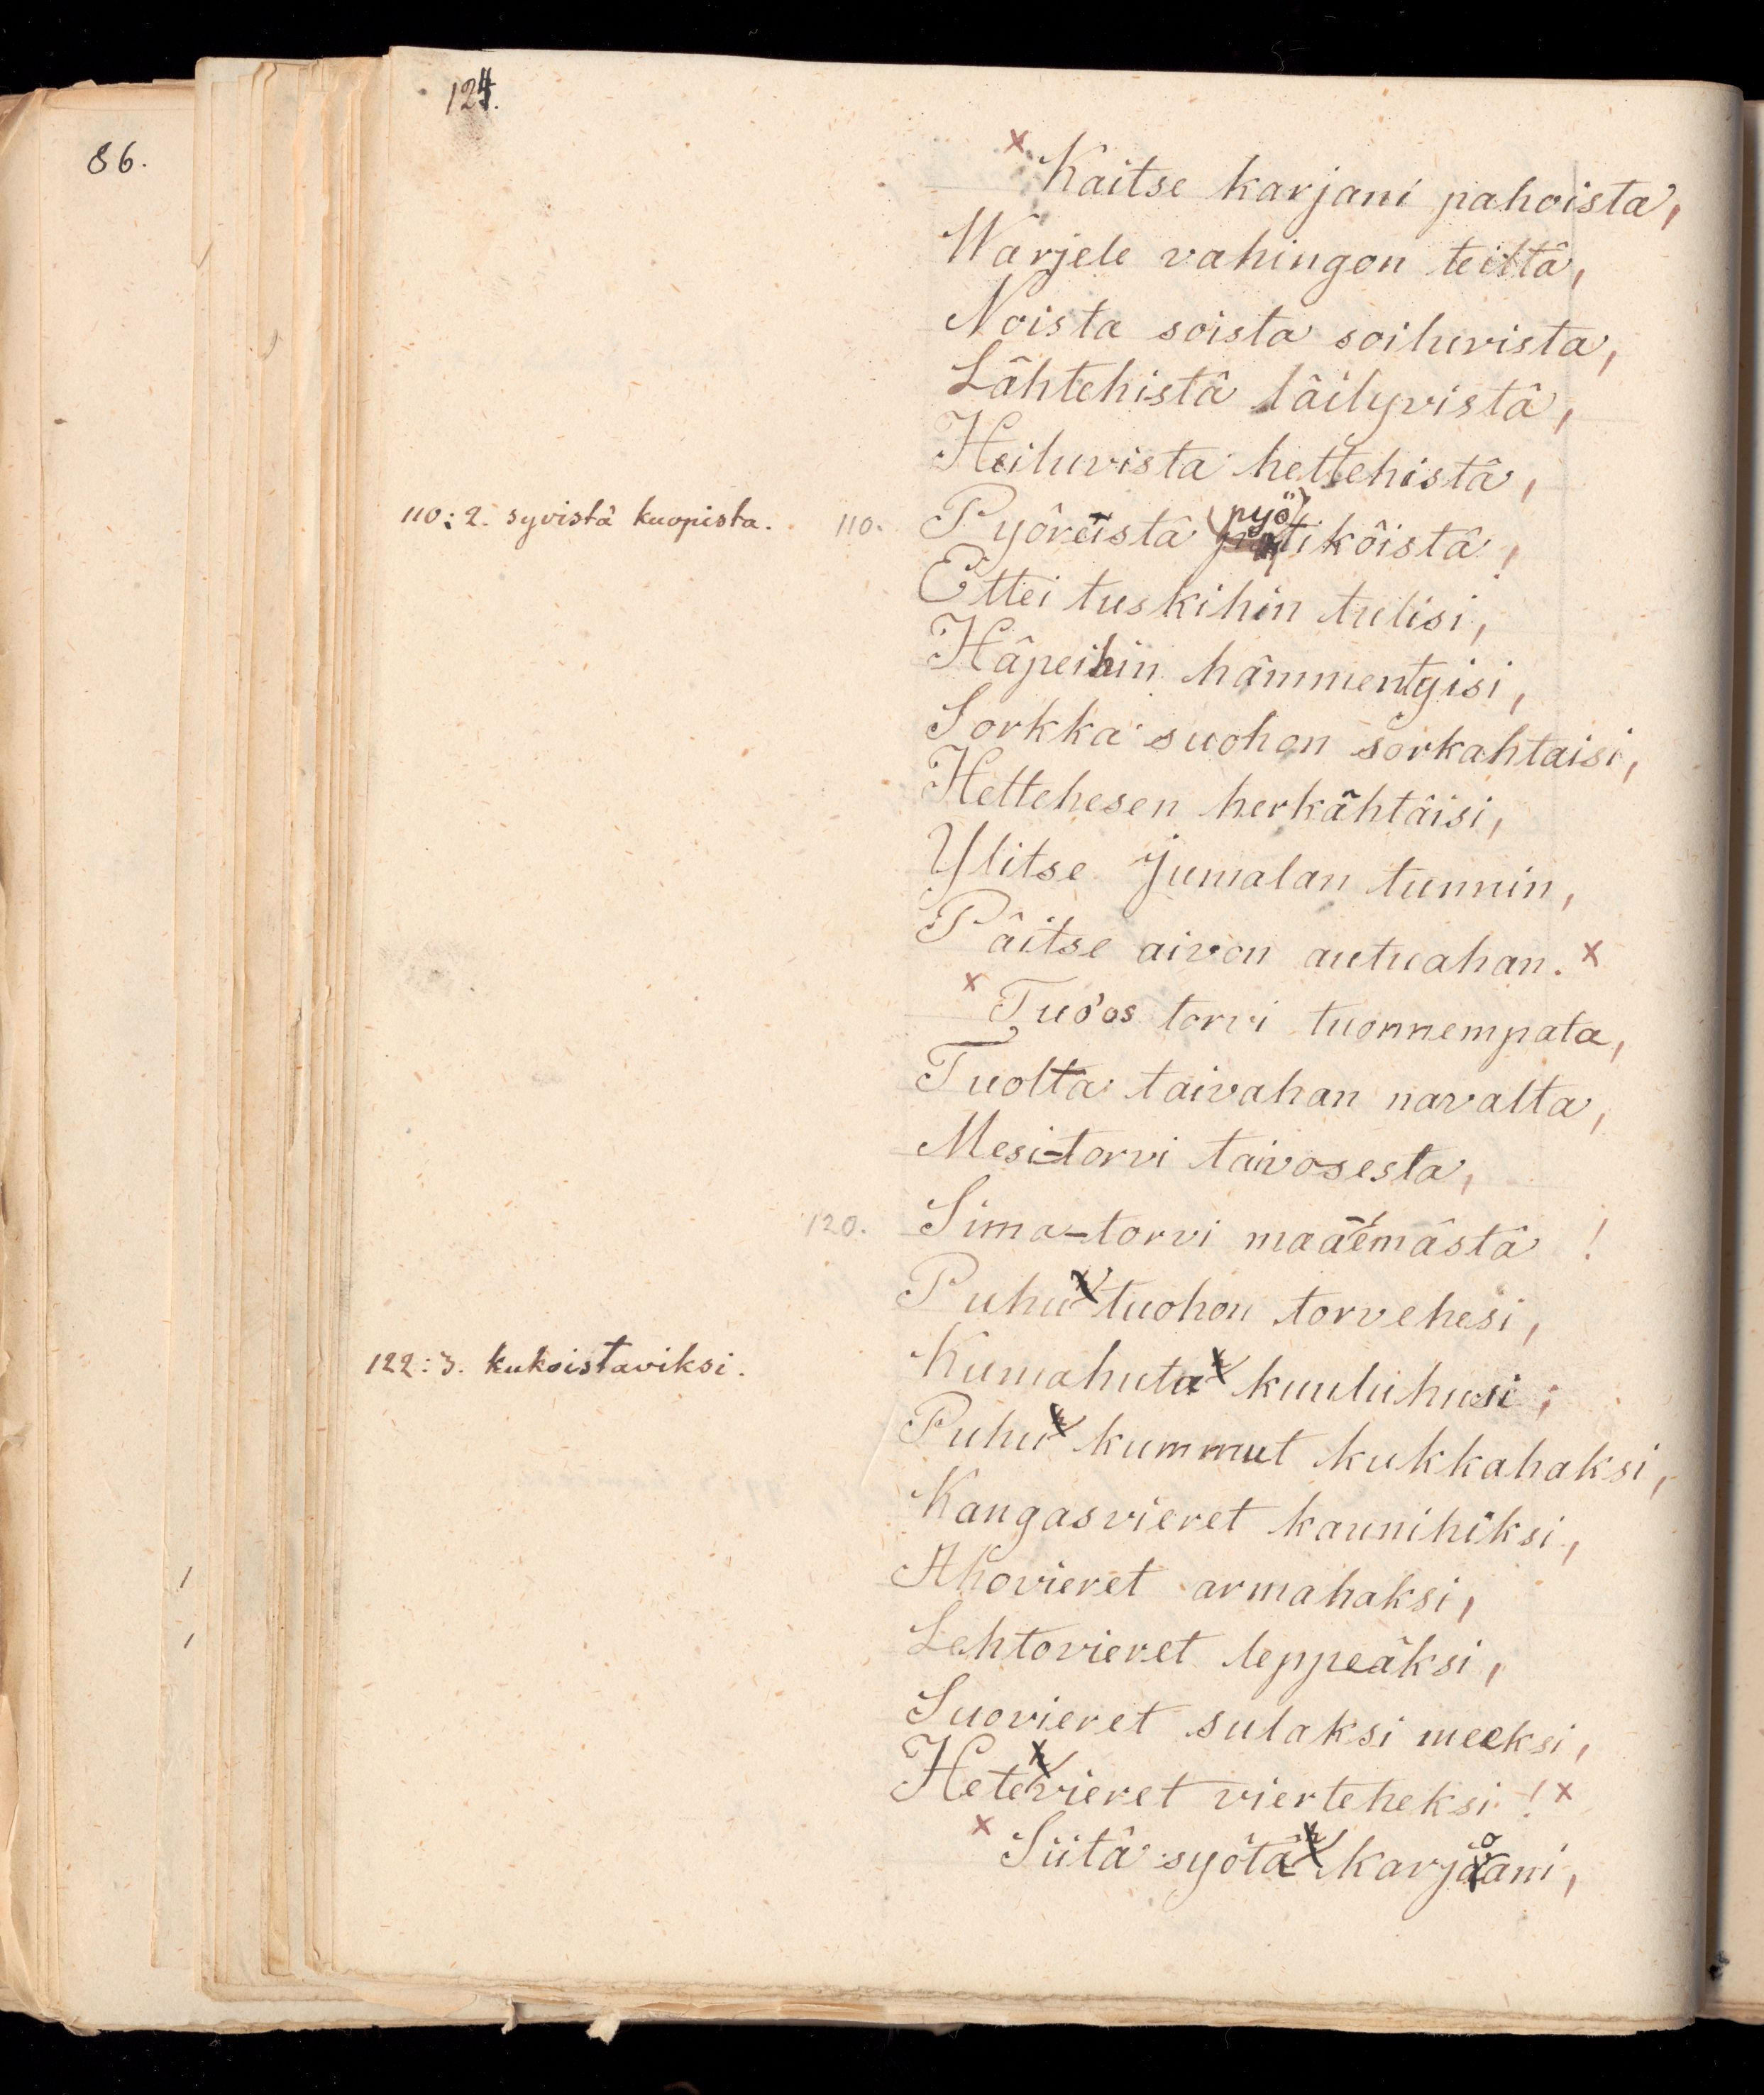 86.
124.
x Kaitse karjani pahoista,
Warjele vahingon teiltâ,
Noista soista soiluvista,
Lâhtehistâ lâilyvistâ,
Heiluvista hettehistâ,
110: 2. syvistâ kuopista.
110. Pyôreistâ pyötikôistâ!
Ettei tuskihin tulisi,
Hâpeihin hâmmentyisi,
Sorkka suohon sorkahtaisi,
Hettehesen herkâhtâisi,
Ylitse Jumalan tunnin,
Pâitse aivon autuahan. x
x Tuo'os torvi tuonnempata,
Tuolta taivahan navalta,
Mesi-torvi taivosesta,
120. Sima-torvi maaemâstâ!
Puhu tuohon torvehesi,
122: 3. kukoistaviksi.
Kumahuta kuuluhusi;
Puhu kummut kukkahaksi,
Kangasvieret kaunihiksi,
Ahovieret armahaksi,
Lehtovieret leppeâksi,
Suovieret sulaksi meeksi,
Hetevieret vierteheksi! x
x Siitâ syôtâ karjoani,